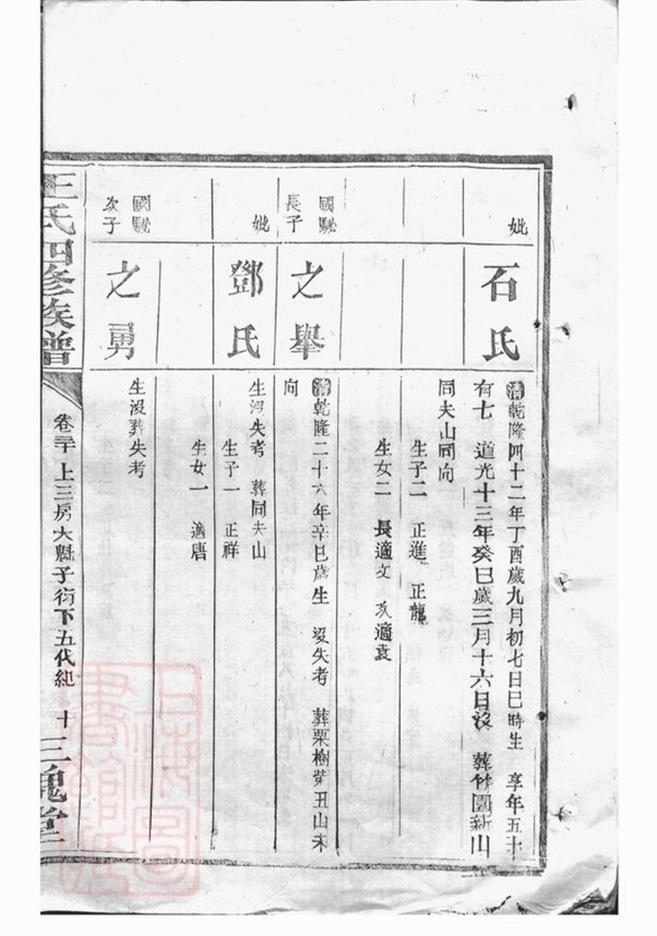 妣
石氏
清乾隆四十二年丁酉歲九月初七日巳時生 享年五十
有七 道光十三年癸巳歲三月十六日沒 葬竹園新山
同夫山同向
生子二 正進 正龍
生女二 長適文 次適袁
國駹
長子
之舉
清乾隆二十六年辛巳歲生 沒失考 葬栗樹𡶶丑山未
向
妣
鄧氏
生沒失考 葬同夫山
生子一 正祥
生女一 適唐
國駹
次子
之勇
生沒葬失考
王氏四修族譜
上三房大
子衍下五代紀 十
三槐堂
上海圖書館藏